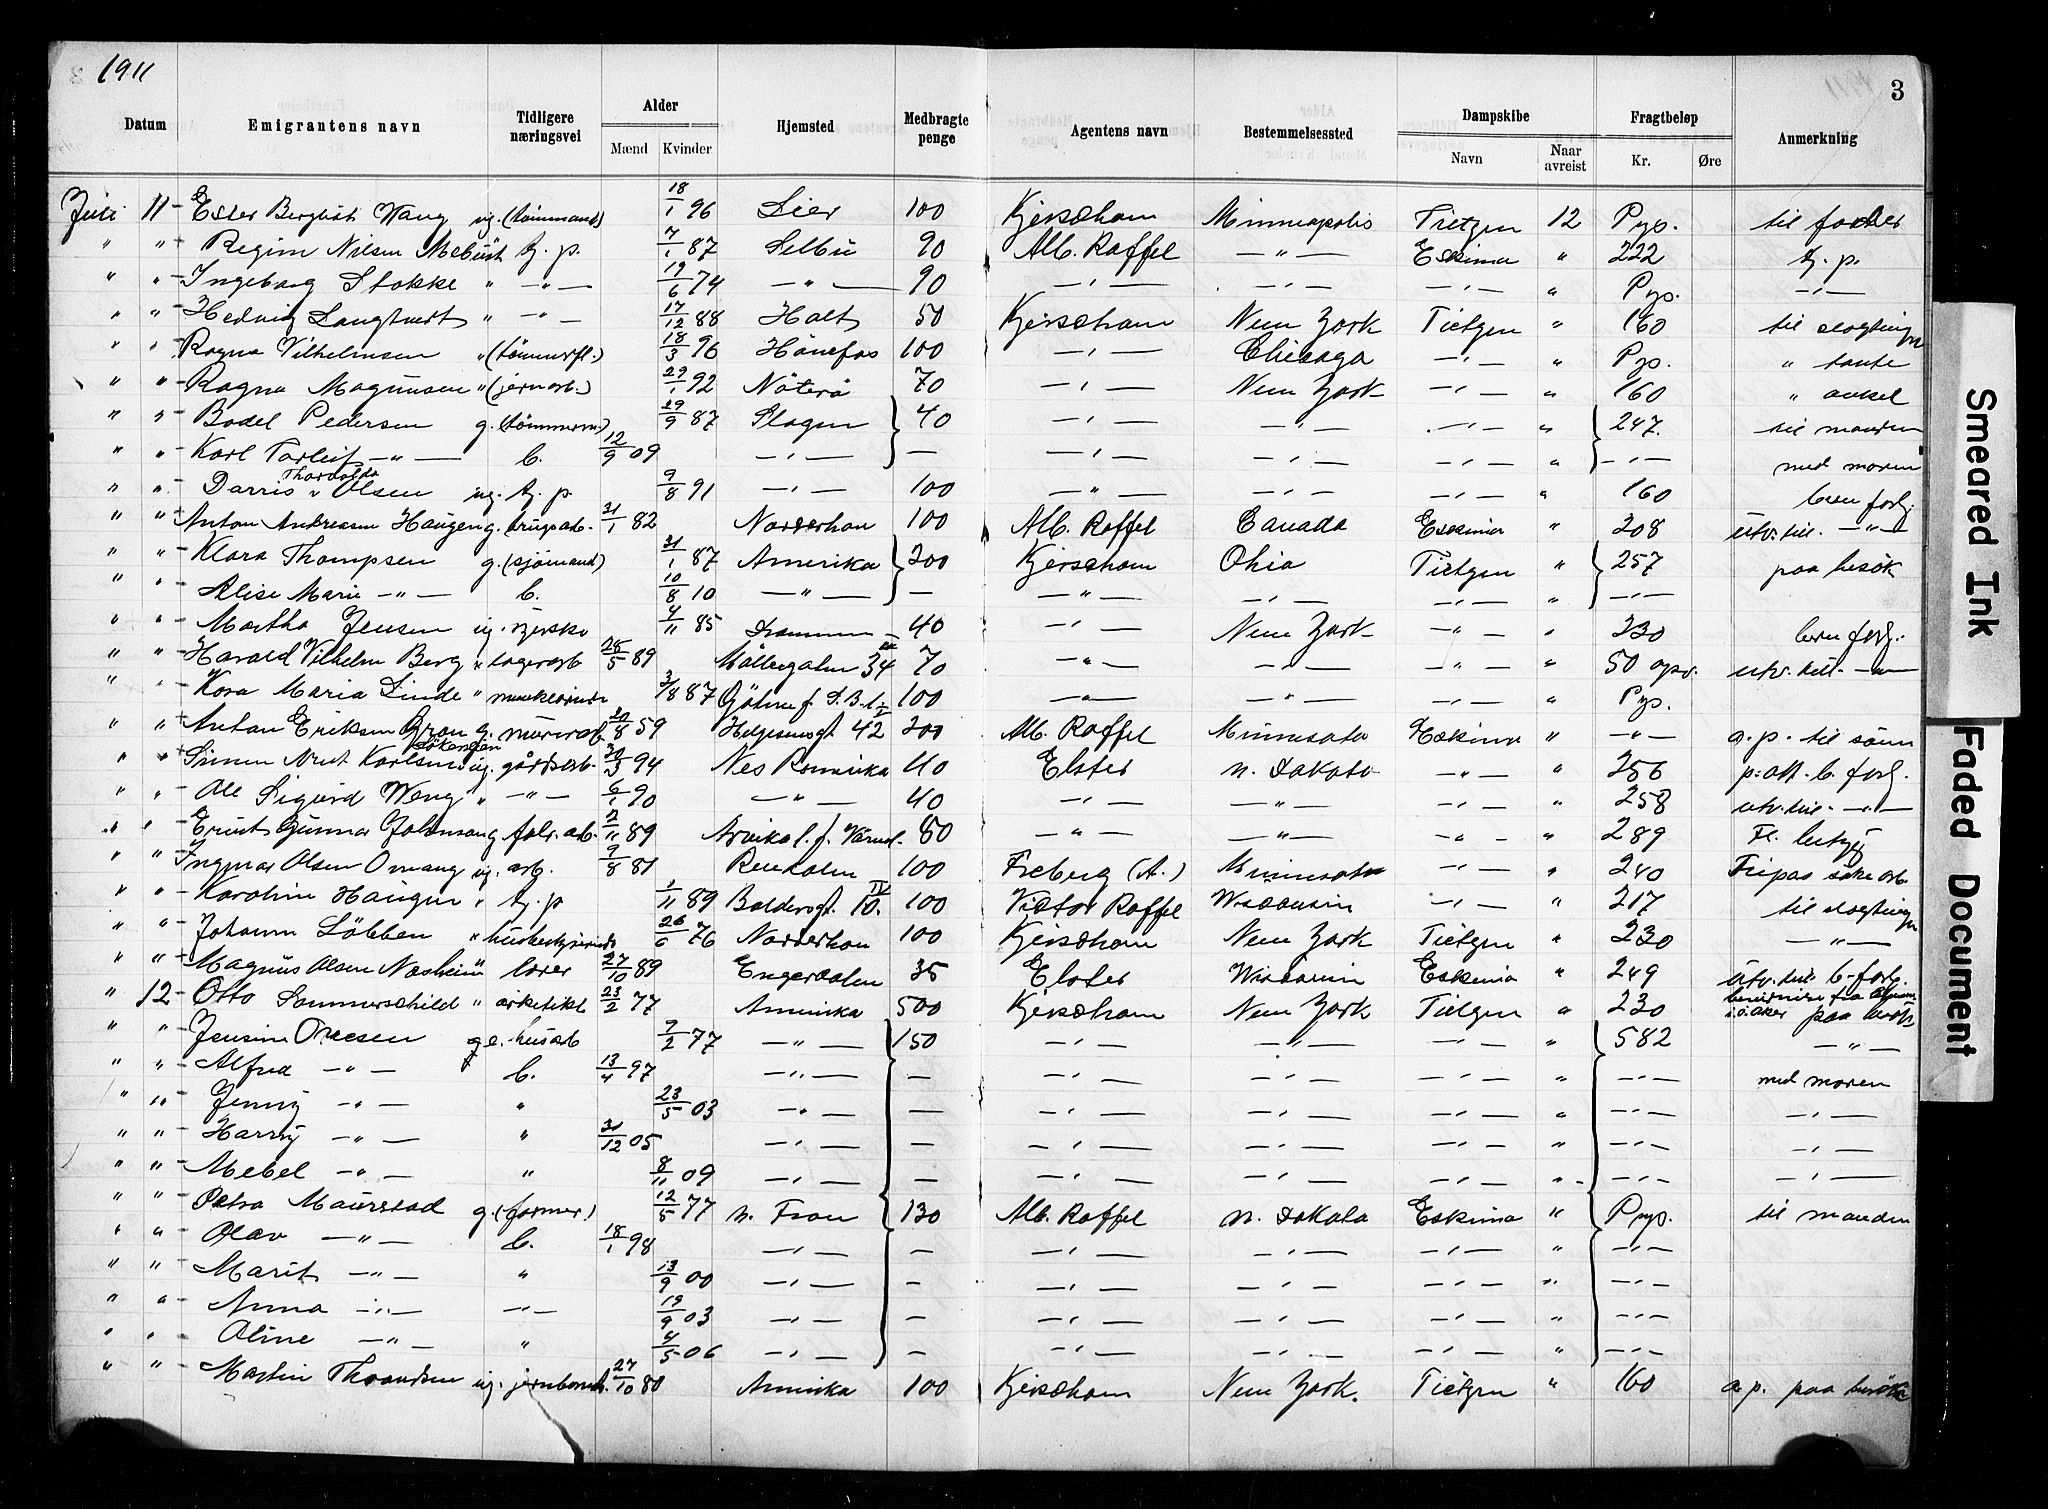 1911
3
Datum | Emigrantens navn | Tidligere næringsvei | Alder Mænd Kvinder | Hjemsted | Medbragte penge | Agentens navn | Bestemmelsessted | Dampskibe Navn Naar avreist | Fragtbeløp Kr. Øre | Anmerkning
Juli 11 - Ester Bergliot Wang ug. (tømmand) 18/1 96 Lier 100 Kjerschow Minneapolis Tietgen 12 Pys. til fader
" " - Regine Nilsen Mebust tj. p. 7/1 87 Selbu 90 Alb. Raffel - " - Eskimo " 222 tj. p.
" " - Ingeborg Stokke " - " - 19/6 74 - " - 90 - " - - " - - " - " Pys. - " -
" " - Hedvig Langtvert " - " - 17/12 88 Holt 50 Kjerschow New York Tietgen " 160 til slogtninge
" " - Ragna Vilhelmsen " (tømmerfl.) 18/3 96 Hönefos 100 - " - Chicago - " - " Pys. " tante
" " - Ragna Magnusen " (jernarb.) 29/1 92 Nöterö 70 - " - New York - " - " 160 " onkel
" " - Bodel Pedersen g. (tömmerm.) 29/9 87 Slagen 40 - " - - " - - " - " 247. til manden
" " - Karl Torleif - " - b. 12/9 09 - " - - - " - - " - - " - " - " - med moren
" " - Dorris Thorvalda Olsen ug. tj. p. 9/8 91 - " - 100 - " - - " - - " - " 160 bere forh.
" " + Anton Andreasen Haugen g. brugsarb. 31/1 82 Norderhov 100 Alb. Raffel Canada Eskimo " 208 utv. til. - " -
" " - Klara Thompsen g. (sjömand) 31/1 87 Amerika 200 Kjerschow Ohio Tietgen " 257 paa besök
" " - Alise Marie - " - b. 10/8 10 - " - - - " - - " - - " - " - " -
" " - Martha Jensen ug. syerske 4/11 85 Drammen 40 - " - New York - " - " 230 bere forh.
" " - Harald Vilhelm Berg " lagerarb 28/5 89 Möllergaten 34 70 - " - - " - - " - " 50 opr. utv. til. - " -
" " - Kora Maria Linde " 3/8 87 100 - " - - " - - " - " Pys.
" " + Anton Eriksen Gron g. murerarb. 20/8 59 Helgesensgt 42 200 Alb. Raffel Minnesota Eskimo " - " - a. p. til sönn
" " + Simen Nrut Karlsen ug. gårdsarb. 30/3 94 Nes Romerike 40 Elster n. Dakota - " - " 256 p. att. b. forh.
" " - Ole Sigurd Weng " - " - 6/1 90 - " - 40 - " - - " - - " - " 258 utv. til. - " -
" " - Ernst Gunnar Johansen g. fabr. arb. 2/11 89 Arvika l. f. Värml. 80 - " - - " - - " - " 289
" " - Ingvar Olsen Omang ug. arb. 9/8 81 Rendalen 100 Freberg (A.) Minnesota - " - " 240 Fripas söke arb
" " - Karoline Haugen " tj. p 1/11 89 Baldersgt. 10. 100 Victor Raffel Wisconsin - " - " 217 til slogtninge
" " - Johanne Löbben " husbestyrerinde 26/6 76 Norderhov 100 Kjerschow New York Tietgen " 230 - " -
" " + Magnus Olsen Nosheim " lærer 27/10 89 Engerdalen 35 Elster Wisconsin Eskimo " 249 utv. til. b. forh.
" 12 - Otto Sommerschild " arkitekt 23/2 77 Amerika 500 Kjerschow New York Tietgen " 230 paa besök
" " - Jensine Ovesen ge. husarb 7/2 77 - " - 150 - " - - " - - " - " 582 - " -
" " - Alfred - " - b. 13/4 97 - " - - - " - - " - - " - " - " - med moren
" " - Jenny - " - " 23/5 03 - " - - - " - - " - - " - " - " - - " -
" " - Harry - " - " 31/12 05 - " - - - " - - " - - " - " - " - - " -
" " - Mebel - " - " 8/11 09 - " - - - " - - " - - " - " - " - - " -
" " - Petra Maurstad g. (farmer) 12/5 77 n. Fron 130 Alb. Raffel n. Dakota Eskimo " Pys. til manden
" " - Olav - " - b. 18/1 98 - " - - - " - - " - - " - " - " -
" " - Marit - " - " 13/9 00 - " - - - " - - " - - " - " - " -
" " - Anna - " - - " - 19/9 03 - " - - - " - - " - - " - " - " -
" " - Oline - " - " 4/5 06 - " - - - " - - " - - " - " - " -
" " - Martin Thorvdsen ug. 27/10 80 Amerika 100 Kjerschow New York. Tietgen " 160 a. p. paa besök
Smeared Ink
Faded Document